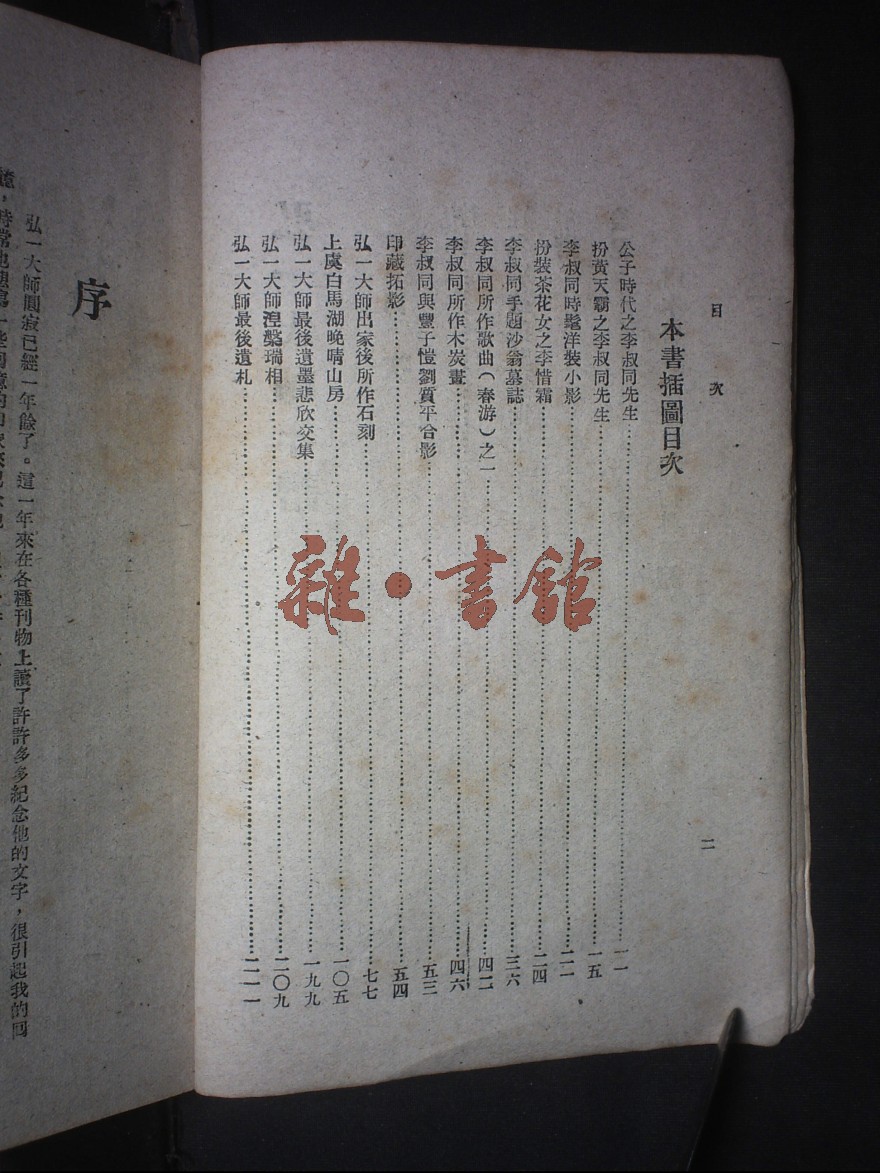 目次
二
本書插圖目次
公子時代之李叔同先生……一一
扮黃天霸之李叔同先生……一五
李叔同時髦洋裝小影……二一
扮裝茶花女之李惜霜……二四
李叔同手題沙翁墓誌……三六
李叔同所作歌曲(春游)之一……四二
李叔同所作木炭畫……四六
李叔同與豐子愷劉質平合影……五三
印藏拓影……五四
弘一大師出家後所作石刻……七七
上虞白馬湖晚晴山房……一〇五
弘一大師最後遺墨悲欣交集……一九九
弘一大師湼槃瑞相……二〇九
弘一大師最後遺札……二一一
序
弘一大師圓寂已經一年餘了。這一年來在各種刊物上讀了許許多多紀念他的文字，很引起我的回
憶，時常也想寫一些回憶的
雜·書館